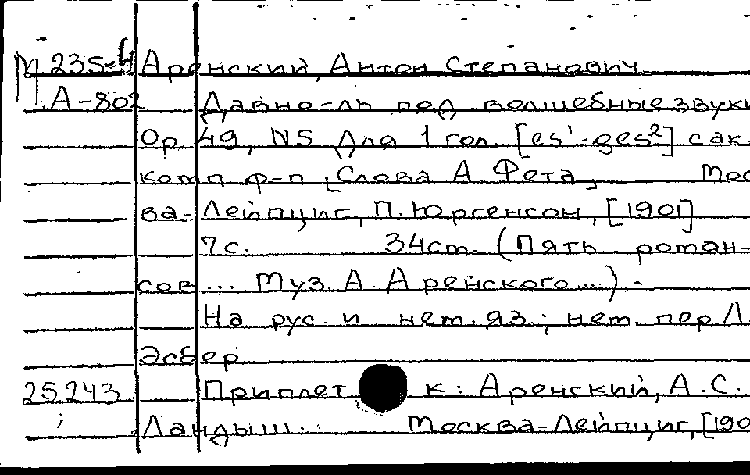 М 235-4 Аренский, Антон Степанович
А-802 Давно-ль под волшебные звуки
Op. 49, N5 Для 1 гол. [es¹-ges²] с ак.
комп ф-п [Слова А Фета] Мос
ква-Лейпциг, П. Юргенсон, [1901]
7с. 34см. (Пять роман-
сов ... Муз. А Аренского ...) -
На рус. и нем. яз.; нем. пер Л.
Эсбер
25243 Приплет к: Аренский, А.С.
Ландыш. Москва-Лейпциг, [190